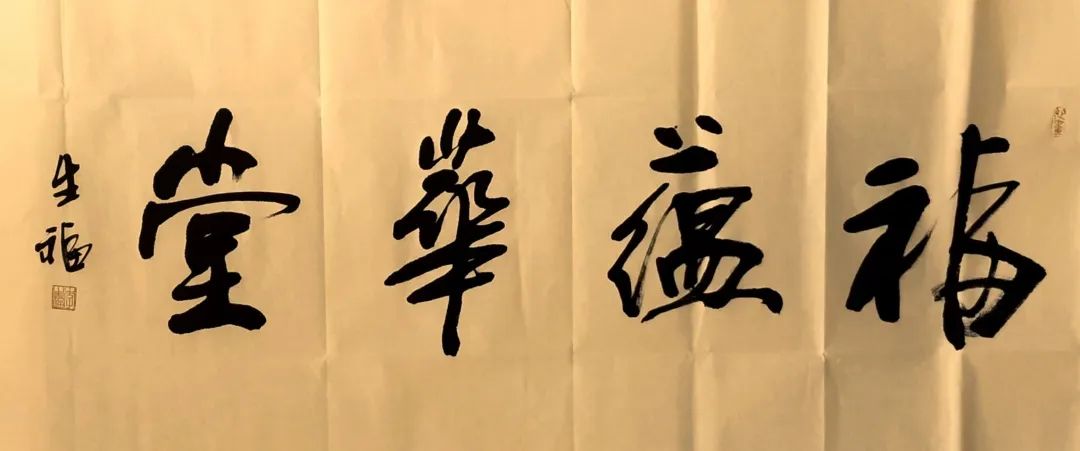 福蕴華堂
生福